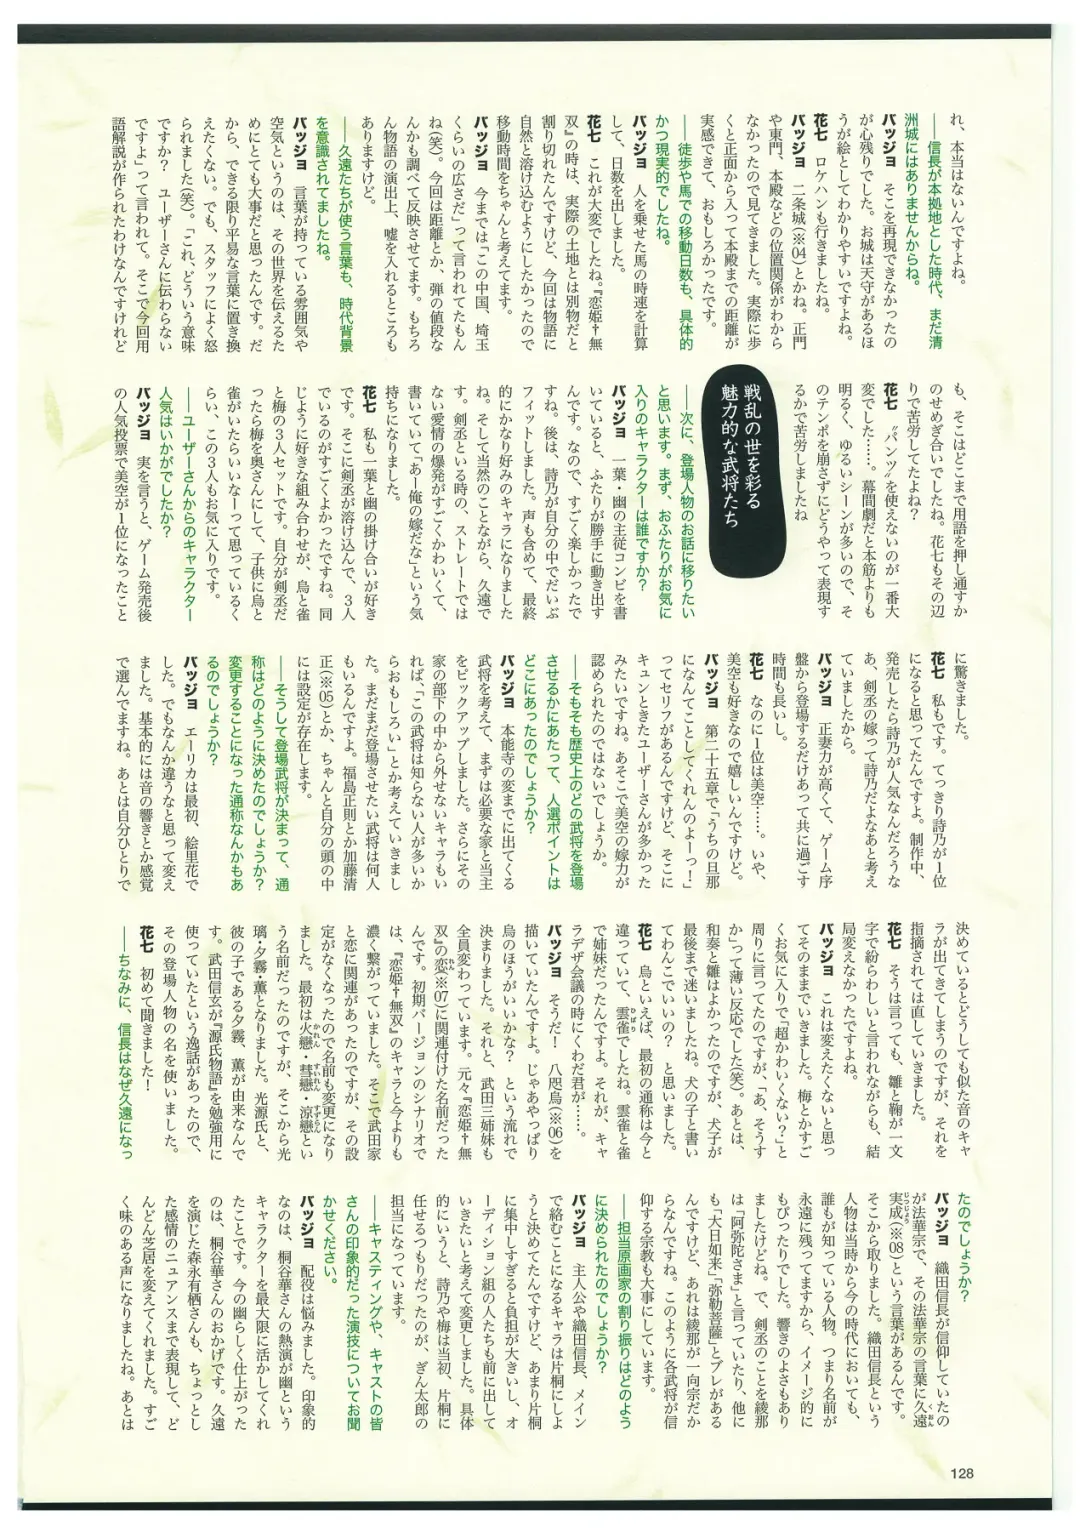 れ、本当はないんですよね。
――信長が本拠地とした時代、まだ清
洲城にはありませんからね。
バッジョ　そこを再現できなかったの
が心残りでした。お城は天守があるほ
うが絵としてわかりやすいですよね。
花七　ロケハンも行きましたね。
バッジョ　二条城(※04)とかね。正門
や東門、本殿などの位置関係がわから
なかったので見てきました。実際に歩
くと正面から入って本殿までの距離が
実感できて、おもしろかったです。
――徒歩や馬での移動日数も、具体的
かつ現実的でしたね。
バッジョ　人を乗せた馬の時速を計算
して、日数を出しました。
花七　これが大変でしたね。『恋姫†無
双』の時は、実際の土地とは別物だと
割り切れたんですけど、今回は物語に
自然と溶け込むようにしたかったので
移動時間をちゃんと考えてます。
バッジョ　今までは「この中国、埼玉
くらいの広さだ」って言われてたもん
ね(笑)。今回は距離とか、弾の値段な
んかも調べて反映させてます。もちろ
ん物語の演出上、嘘を入れるところも
ありますけど。
――久遠たちが使う言葉も、時代背景
を意識されてましたね。
バッジョ　言葉が持っている雰囲気や
空気というのは、その世界を伝えるた
めにとても大事だと思ったんです。だ
から、できる限り平易な言葉に置き換
えたくない。でも、スタッフによく怒
られました(笑)。「これ、どういう意味
ですか？　ユーザーさんに伝わらない
ですよ」って言われて。そこで今回用
語解説が作られたわけなんですけれど
も、そこはどこまで用語を押し通すか
のせめぎ合いでしたね。花七もその辺
りで苦労してたよね？
花七　“パンツ”を使えないのが一番大
変でした……。幕間劇だと本筋よりも
明るく、ゆるいシーンが多いので、そ
のテンポを崩さずにどうやって表現す
るかで苦労しましたね
戦乱の世を彩る
魅力的な武将たち
――次に、登場人物のお話に移りたい
と思います。まず、おふたりがお気に
入りのキャラクターは誰ですか？
バッジョ　一葉・幽の主従コンビを書
いていると、ふたりが勝手に動き出す
んです。なので、すごく楽しかったで
すね。後は、詩乃が自分の中でだいぶ
フィットしました。声も含めて、最終
的にかなり好みのキャラになりました
ね。そして当然のことながら、久遠で
す。剣丞といる時の、ストレートでは
ない愛情の爆発がすごくかわいくて、
書いていて「あー俺の嫁だな」という気
持ちになりました。
花七　私も一葉と幽の掛け合いが好き
です。そこに剣丞が溶け込んで、3人
でいるのがすごくよかったですね。同
じように好きな組み合わせが、烏と雀
と梅の3人セットです。自分が剣丞だ
ったら梅を奥さんにして、子供に烏と
雀がいたらいいなーって思っているく
らい、この3人もお気に入りです。
――ユーザーさんからのキャラクター
人気はいかがでしたか？
バッジョ　実を言うと、ゲーム発売後
の人気投票で美空が1位になったこと
に驚きました。
花七　私もです。てっきり詩乃が1位
になると思ってたんですよ。制作中、
発売したら詩乃が人気なんだろうな
あ、剣丞の嫁って詩乃だよなあと考え
ていましたから。
バッジョ　正妻力が高くて、ゲーム序
盤から登場するだけあって共に過ごす
時間も長いし。
花七　なのに1位は美空……。いや、
美空も好きなので嬉しいんですけど。
バッジョ　第二十五章で「うちの旦那
になんてことしてくれんのよーっ！」
ってセリフがあるんですけど、そこに
キュンときたユーザーさんが多かった
みたいですね。あそこで美空の嫁力が
認められたのではないでしょうか。
――そもそも歴史上のどの武将を登場
させるかにあたって、人選ポイントは
どこにあったのでしょうか？
バッジョ　本能寺の変までに出てくる
武将を考えて、まずは必要な家と当主
をピックアップしました。さらにその
家の部下の中から外せないキャラもい
れば、「この武将は知らない人が多いか
らおもしろい」とか考えていきまし
た。まだまだ登場させたい武将は何人
もいるんですよ。福島正則とか加藤清
正(※05)とか、ちゃんと自分の頭の中
には設定が存在します。
――そうして登場武将が決まって、通
称はどのように決めたのでしょうか？
変更することになった通称なんかもあ
るのでしょうか？
バッジョ　エーリカは最初、絵里花で
した。でもなんか違うなと思って変え
ました。基本的には音の響きとか感覚
で選んでますね。あとは自分ひとりで
決めているとどうしても似た音のキャ
ラが出てきてしまうのですが、それを
指摘されては直していきました。
花七　そうは言っても、雛と鞠が一文
字で紛らわしいと言われながらも、結
局変えなかったですよね。
バッジョ　これは変えたくないと思っ
てそのままでいきました。梅とかすご
くお気に入りで「超かわいくない？」と
周りに言ってたのですが、「あ、そうす
か」って薄い反応でした(笑)。あとは、
和奏と雛はよかったのですが、犬子が
最後まで迷いましたね。犬の子と書い
てわんこでいいの？　と思いました。
花七　烏といえば、最初の通称は今と
違っていて、雲雀でしたね。雲雀と雀
で姉妹だったんですよ。それが、キャ
ラデザ会議の時にくわだ君が……。
バッジョ　そうだ！　八咫烏(※06)を
描いていたんですよ。じゃあやっぱり
烏のほうがいいかな？　という流れで
決まりました。それと、武田三姉妹も
全員変わっています。元々『恋姫†無
双』の恋(※07)に関連付けた名前だった
んです。初期バージョンのシナリオで
は、『恋姫†無双』のキャラと今よりも
濃く繋がっていました。そこで武田家
と恋に関連があったのですが、その設
定がなくなったので名前も変更になり
ました。最初は火戀・彗戀・涼戀とい
う名前だったのですが、そこから光
璃・夕霧・薫となりました。光源氏と、
彼の子である夕霧、薫が由来なんで
す。武田信玄が『源氏物語』を勉強用に
使っていたという逸話があったので、
その登場人物の名を使いました。
花七　初めて聞きました！
――ちなみに、信長はなぜ久遠になっ
たのでしょうか？
バッジョ　織田信長が信仰していたの
が法華宗で、その法華宗の言葉に久遠
実成(※08)という言葉があるんです。
そこから取りました。織田信長という
人物は当時から今の時代においても、
誰もが知っている人物。つまり名前が
永遠に残ってますから、イメージ的に
もぴったりでした。響きのよさもあり
ましたけどね。で、剣丞のことを綾那
は「阿弥陀さま」と言っていたり、他に
も「大日如来」「弥勒菩薩」とブレがある
んですけど、あれは綾那が一向宗だか
らなんですね。このように各武将が信
仰する宗教も大事にしています。
――担当原画家の割り振りはどのよう
に決められたのでしょうか？
バッジョ　主人公や織田信長、メイン
で絡むことになるキャラは片桐にしよ
うと決めてたんですけど、あまり片桐
に集中しすぎると負担が大きいし、オ
ーディション組の人たちも前に出して
いきたいと考えて変更しました。具体
的にいうと、詩乃や梅は当初、片桐に
任せるつもりだったのが、ぎん太郎の
担当になっています。
――キャスティングや、キャストの皆
さんの印象的だった演技についてお聞
かせください。
バッジョ　配役は悩みました。印象的
なのは、桐谷華さんの熱演が幽という
キャラクターを最大限に活かしてくれ
たことです。今の幽らしく仕上がった
のは、桐谷華さんのおかげです。久遠
を演じた森永有栖さんも、ちょっとし
た感情のニュアンスまで表現して、ど
んどん芝居を変えてくれました。すご
く味のある声になりましたね。あとは
128